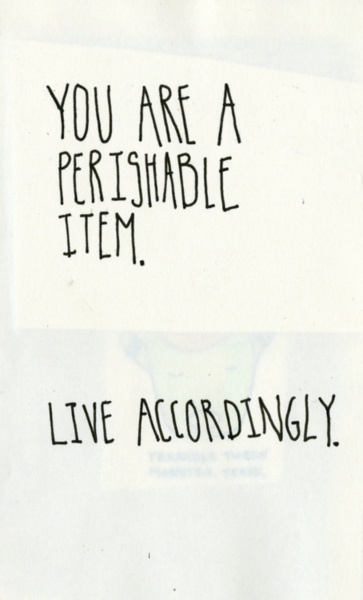 YOU ARE A
PERISHABLE
ITEM.
LIVE ACCORDINGLY.